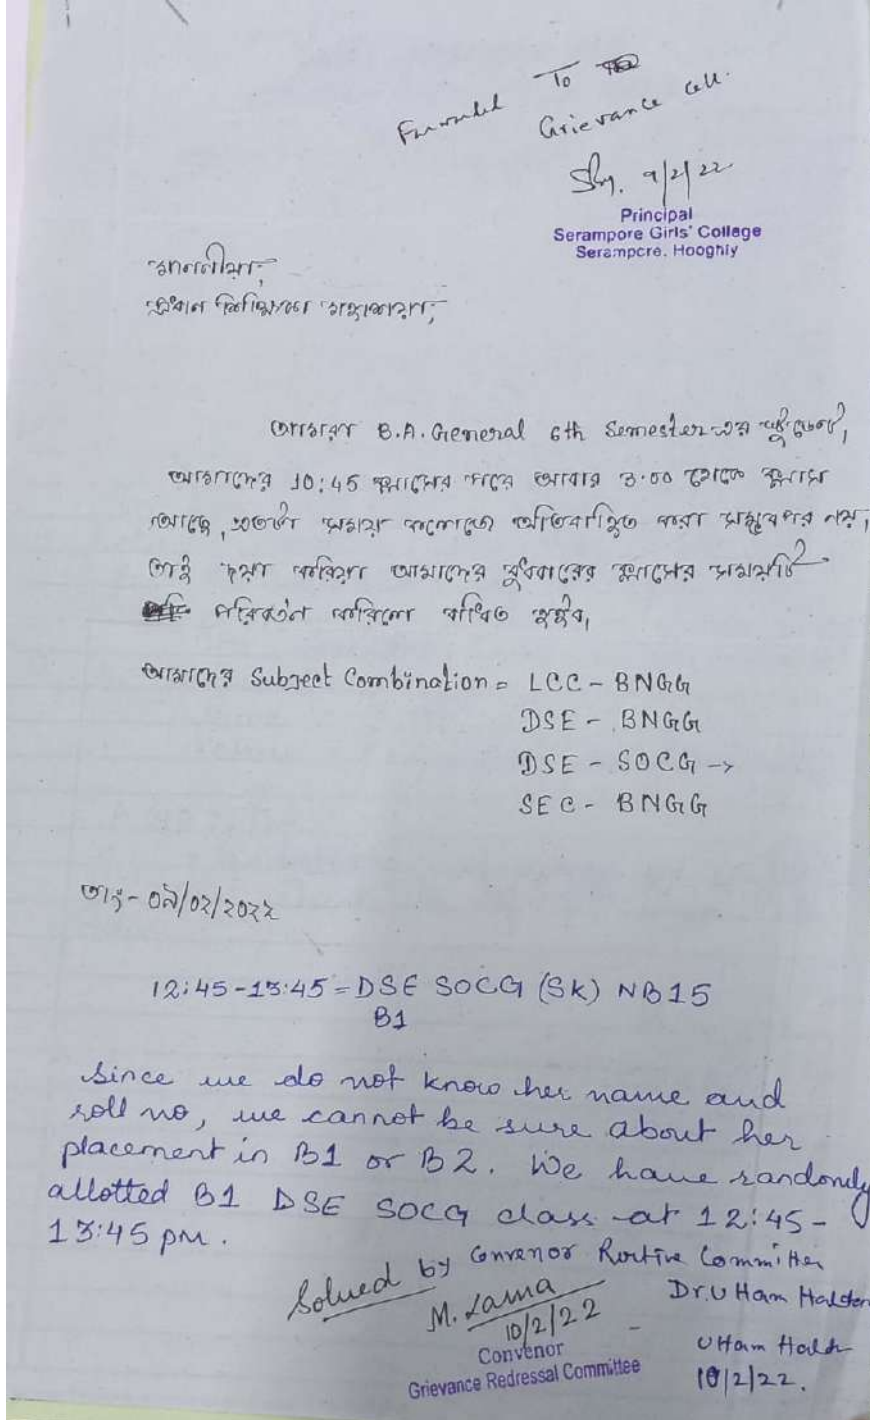 Forwarded To
Grievance Cell.
9/2/22
Principal
Serampore Girls' College
Serampore, Hooghly
মাননীয়া,
প্রধান শিক্ষিকা মহাশয়া,
আমরা B.A. General 6th Semester এর স্টুডেন্ট,
আমাদের 10:45 ক্লাসের পরে আবার 3.00 থেকে ক্লাস
আছে, এতটা সময় কলেজে অতিবাহিত করা সম্ভবপর নয়,
তাই দয়া করিয়া আমাদের বুধবারের ক্লাসের সময়টি
পরিবর্তন করিলে বাধিত হইব,
আমাদের Subject Combination = LCC - BNGG
DSE - BNGG
DSE - SOCG →
SEC - BNGG
তাং - ০৯/০২/২০২২
12:45-13:45 = DSE SOCG (SK) NB15
B1
Since we do not know her name and
roll no, we cannot be sure about her
placement in B1 or B2. We have randomly
allotted B1 DSE SOCG class at 12:45-
13:45 pm.
Solved by Convenor Routine Committee
M. Lama
Dr. Uttam Halder
10/2/22
Convenor
Grievance Redressal Committee
Uttam Halder
10/2/22.